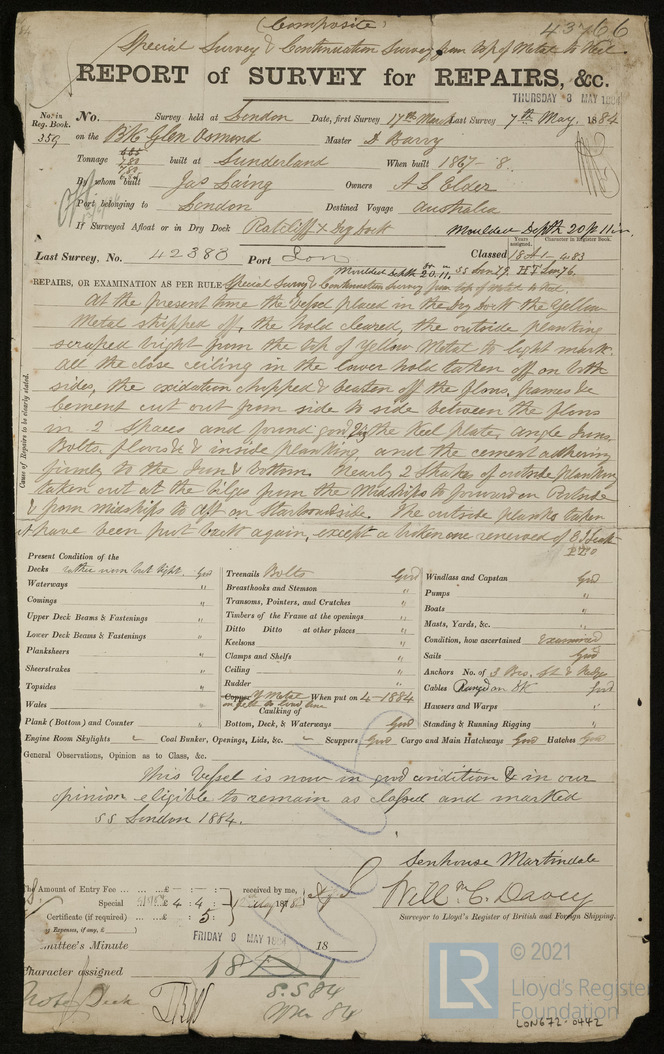 (Composite)
43766
Special Survey & Continuation Survey from top of Metal to Keel.
REPORT of SURVEY for REPAIRS, &c.
THURSDAY 8 MAY 1884
No. in Reg. Book. No. Survey held at London Date, first Survey 17th March Last Survey 7th May. 1884
359 on the Bk Glen Osmond Master D Barry
Tonnage built at Sunderland When built 1867-8.
By whom built Jas Laing Owners A L Elder
Port belonging to London Destined Voyage Australia
If Surveyed Afloat or in Dry Dock Ratcliff X Dry Dock Moulded Depth 20 ft 11 in.
Years assigned. Character in Register Book.
Last Survey, No. 42383 Port Lon Classed 18 A1 - 4.83
Moulded Depth 20.11. SS Lon 79. HT Lon 76.
REPAIRS, OR EXAMINATION AS PER RULE Special Survey & Continuation Survey from top of Metal to Keel.
At the present time the Vessel placed in the Dry Dock the Yellow
Metal stripped off, the hold cleared, the outside planking
scraped bright from the top of Yellow Metal to light mark.
All the close ceiling in the lower hold taken off on both
sides, the oxidation chopped & beaten off the floors, frames &c
cement cut out from side to side between the floors
in 2 spaces and found good the Keel plate, angle Irons
Bolts, floors & inside planking, and the cement adhering
firmly to the Iron & bottom. Nearly 2 Strakes of outside planking
taken out at the bilges from the Midships to forward on Portside
& from midships to aft on Starboardside. The outside planks taken
out have been put back again, except a broken one renewed of E I Teak
Causes of Repairs to be clearly stated.
Present Condition of the
Decks rather worn but tight. Good
Waterways "
Comings "
Upper Deck Beams & Fastenings "
Lower Deck Beams & Fastenings "
Planksheers "
Sheerstrakes "
Topsides "
Wales "
Plank (Bottom) and Counter "
Treenails Bolts Good
Breasthooks and Stemson "
Transoms, Pointers, and Crutches "
Timbers of the Frame at the openings "
Ditto Ditto at other places "
Keelsons "
Clamps and Shelfs "
Ceiling "
Rudder "
Copper Y Metal When put on 4-1884
on felt to load line
Caulking of
Bottom, Deck, & Waterways Good
Windlass and Capstan Good
Pumps "
Boats "
Masts, Yards, &c. "
Condition, how ascertained Examined
Sails Good
Anchors No. of 3 Bro. St. & Kedge
Cables Ranged on DK good
Hawsers and Warps "
Standing & Running Rigging "
Engine Room Skylights Coal Bunker, Openings, Lids, &c. Scuppers Good Cargo and Main Hatchways Good Hatches Good
General Observations, Opinion as to Class, &c.
This Vessel is now in good condition & in our
opinion eligible to remain as classed and marked
SS London 1884.
Senhouse Martindale
Willm C. Davey
Surveyor to Lloyd's Register of British and Foreign Shipping.
The Amount of Entry Fee ... £ : :
received by me,
Special ... £ 4 : 4 :
Certificate (if required) ... £ : 5 :
Committee's Minute FRIDAY 9 MAY 1884 18
Character assigned 18 A 1
S.S 84
Wood Deck
© 2021
LR
Lloyd's Register
Foundation
LON672-0442